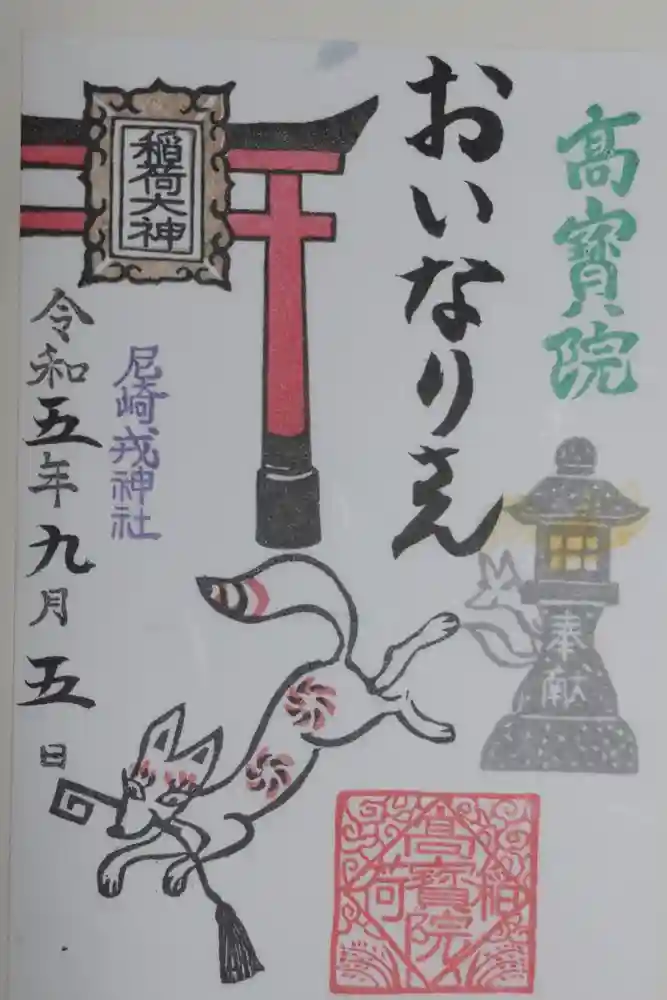 高寳院
おいなりさん
奉献
稲荷大神
尼崎戎神社
令和五年九月五日
稲荷
高寳院